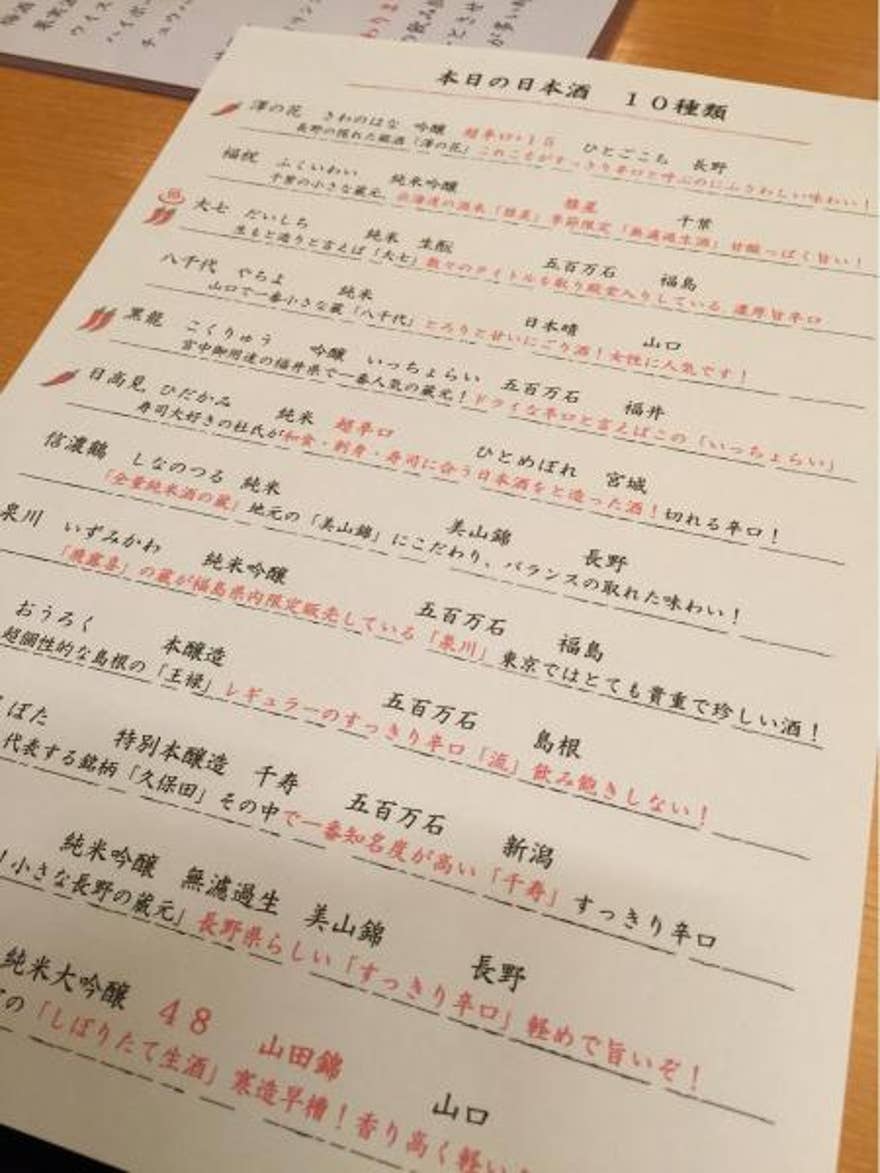 本日の日本酒 10種類
澤の花 さわのはな 吟醸 超辛口+15 ひとごこち 長野
長野の隠れた銘酒「澤の花」これこそがすっきり辛口と呼ぶのにふさわしい味わい!
福祝 ふくいわい 純米吟醸 彗星 千葉
千葉の小さな蔵元 北海道の酒米「彗星」季節限定「無濾過生酒」甘酸っぱく旨い!
大七 だいしち 純米 生酛 五百万石 福島
生もと造りと言えば「大七」数々のタイトルを取り殿堂入りしている 濃厚旨辛口
八千代 やちよ 純米 日本晴 山口
山口で一番小さな蔵「八千代」とろりと甘いにごり酒!女性に人気です!
黒龍 こくりゅう 吟醸 いっちょらい 五百万石 福井
宮中御用達の福井県で一番人気の蔵元!ドライな辛口と言えばこの「いっちょらい」
日高見 ひだかみ 純米 超辛口 ひとめぼれ 宮城
寿司大好きの杜氏が和食・刺身・寿司に合う日本酒をと造った酒!切れる辛口!
信濃鶴 しなのつる 純米 美山錦 長野
「全量純米酒の蔵」地元の「美山錦」にこだわり、バランスの取れた味わい!
泉川 いずみかわ 純米吟醸 五百万石 福島
「飛露喜」の蔵が福島県内限定販売している「泉川」東京ではとても貴重で珍しい酒!
おうろく 本醸造 五百万石 島根
超個性的な島根の「王禄」レギュラーのすっきり辛口「流」飲み飽きしない!
ぼた 特別本醸造 千寿 五百万石 新潟
代表する銘柄「久保田」その中で一番知名度が高い「千寿」すっきり辛口
純米吟醸 無濾過生 美山錦 長野
!小さな長野の蔵元」長野県らしい「すっきり辛口」軽めで旨いぞ!
純米大吟醸 48 山田錦 山口
の「しぼりたて生酒」寒造早槽!香り高く軽い